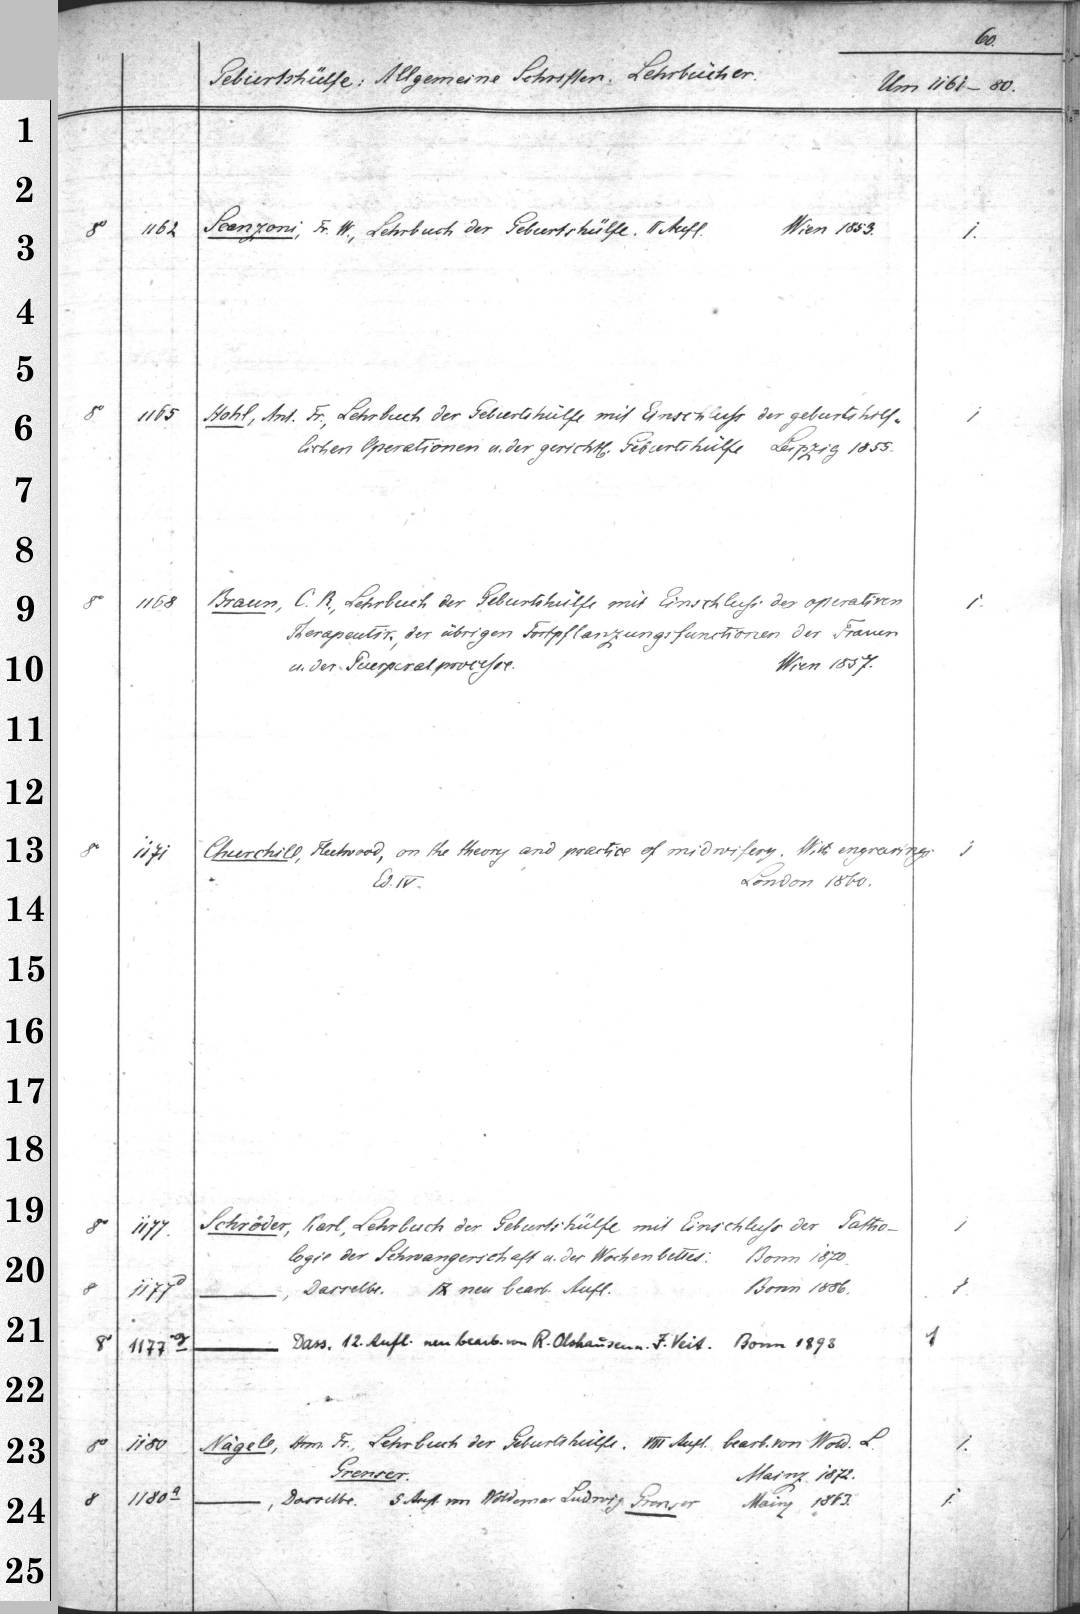 60.
Geburtshülfe: Allgemeine Schriften. Lehrbücher. Um 1161–80.
1
2
8° 1162 Scanzoni, Fr. W., Lehrbuch der Geburtshülfe. II Aufl. Wien 1853. 1.
3
4
5
8° 1165 Hohl, Ant. Fr., Lehrbuch der Geburtshülfe mit Einschluss der geburtshülf-
6
lichen Operationen u. der gerichtl. Geburtshülfe Leipzig 1855.
7
8
8° 1168 Braun, C. R., Lehrbuch der Geburtshülfe mit Einschluss der operativen 1.
9
Therapeutik, der übrigen Fortpflanzungsfunctionen der Frauen
u. der Puerperalprocesse. Wien 1857.
10
11
12
8° 1171 Churchill, Fleetwood, on the theory and practice of midwifery. With engravings. 1
13
Ed. IV. London 1860.
14
15
16
17
18
19
8° 1177. Schröder, Karl, Lehrbuch der Geburtshülfe mit Einschluss der Patho-
logie der Schwangerschaft u. des Wochenbettes. Bonn 1870.
20
8 1177 ———, Dasselbe. IX neu bearb. Aufl. Bonn 1886. 1
21
8° 1177 ——— Dass. 12. Aufl. neu bearb. von R. Olshausen u. J. Veit. Bonn 1893 1
22
8° 1180 Nägele, Hrm. Fr., Lehrbuch der Geburtshülfe. VIII Aufl. bearb. von Wold. L. 1.
23
Grenser. Mainz 1872.
8 1180a ———, Dasselbe. 5 Aufl. von Woldemar Ludwig Grenser Mainz 1863. 1.
24
25